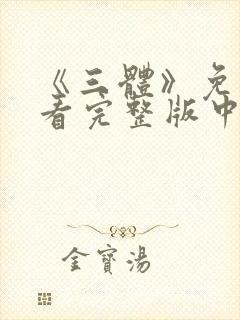 《三體》免
看完整版中
金寶湯